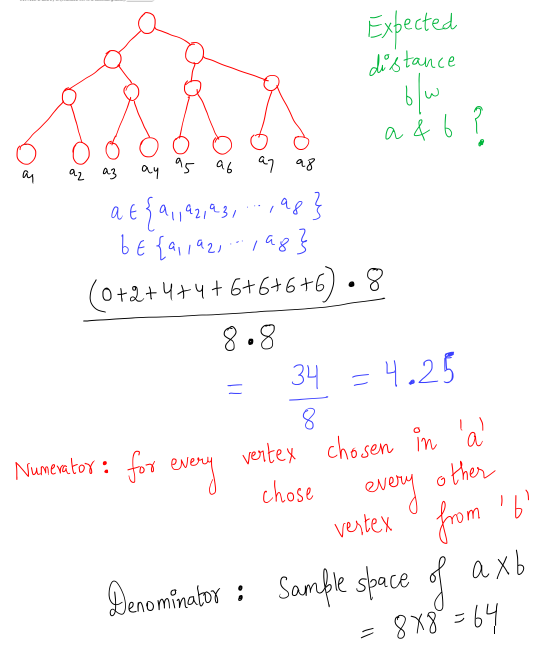 Expected
distance
b/w
a & b ?
a1 a2 a3 a4 a5 a6 a7 a8
a ∈ {a1, a2, a3, ..., a8}
b ∈ {a1, a2, ..., a8}
(0+2+4+4+6+6+6+6) · 8
8 · 8
= 34/8 = 4.25
Numerator: for every vertex chosen in 'a'
chose every other
vertex from 'b'
Denominator: Sample space of a X b
= 8X8 = 64